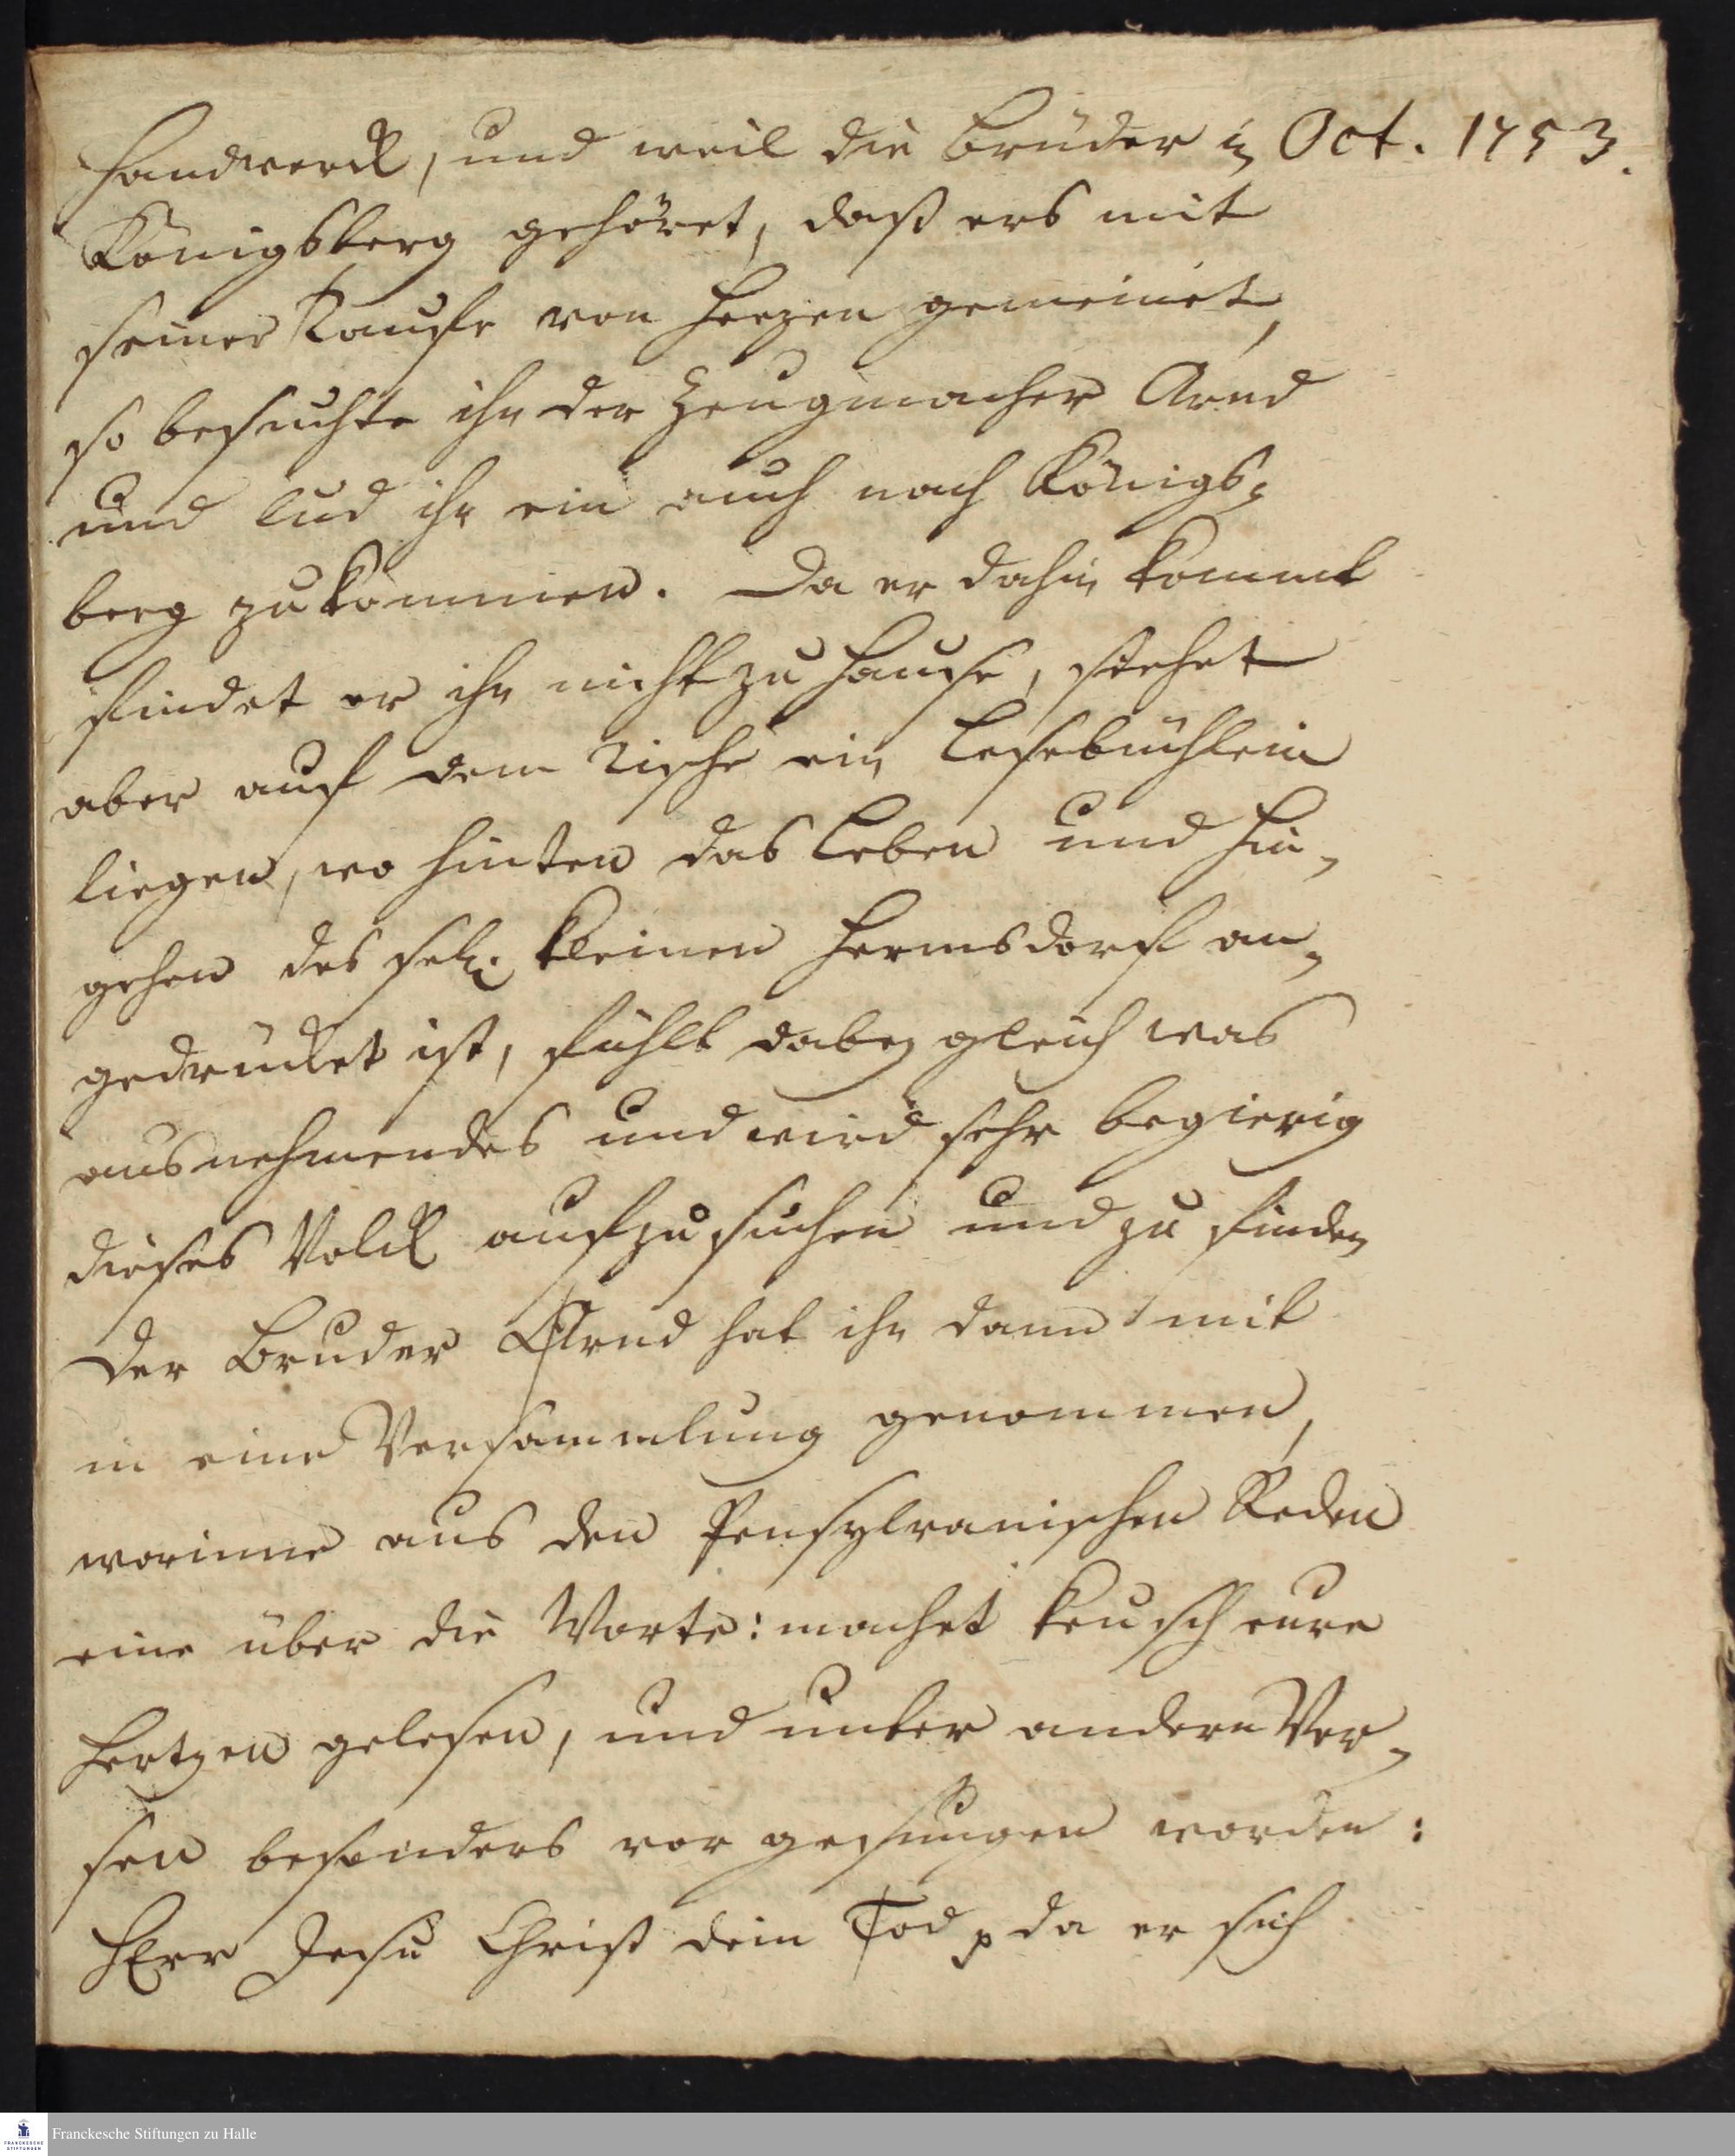 Handwerck, und weil die Brüder in Oct. 1753.
Königsberg gehöret, daß ers mit
seiner Taufe von Herzen gemeinet,
so besuchte ihn der Zeugmacher Arnd
und lud ihn ein auch nach Königs-
berg zu kommen. Da er dahin kommt
findet er ihn nicht zu Hause, siehet
aber auf dem Tische ein Lesebüchlein
liegen, wo hinten das Leben und Hin-
gehen des sel. kleinen Hermsdorf an-
gedrucket ist, fühlt dabey gleich was
ausnehmendes und wird sehr begierig
dieses Volck aufzusuchen und zu finden
Der Bruder Arnd hat ihn dann mit
in eine Versammlung genommen,
worinne aus den Pensylvanischen Reden
eine über die Worte: machet keusch eure
Hertzen gelesen, und unter andern Ver-
sen besonders vor gesungen worden:
HErr Jesu Christ dein Tod p da er sich
Franckesche Stiftungen zu Halle
FRANCKESCHE
STIFTUNGEN